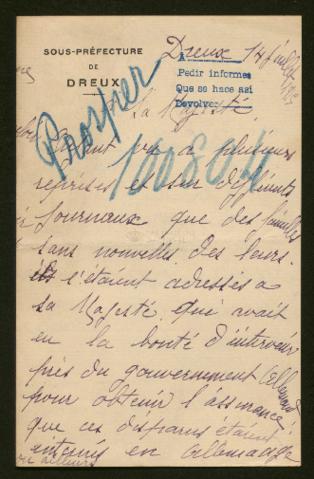 SOUS-PRÉFECTURE
DE
DREUX
Dreux 14 juillet
A
Pedir informes
Que se hace asi
Devolver
Prosper
100804
Sa Majesté,
Ayant vu a plusieurs
reprises et sur différents
journaux que des familles
sans nouvelles des leurs
s'étaient adressés a
Sa Majesté qui avait
eu la bonté d'intervenir
près du gouvernement Allemand
pour obtenir l'assurance
que ces disparus étaient
internés en Allemagne
ou ailleurs